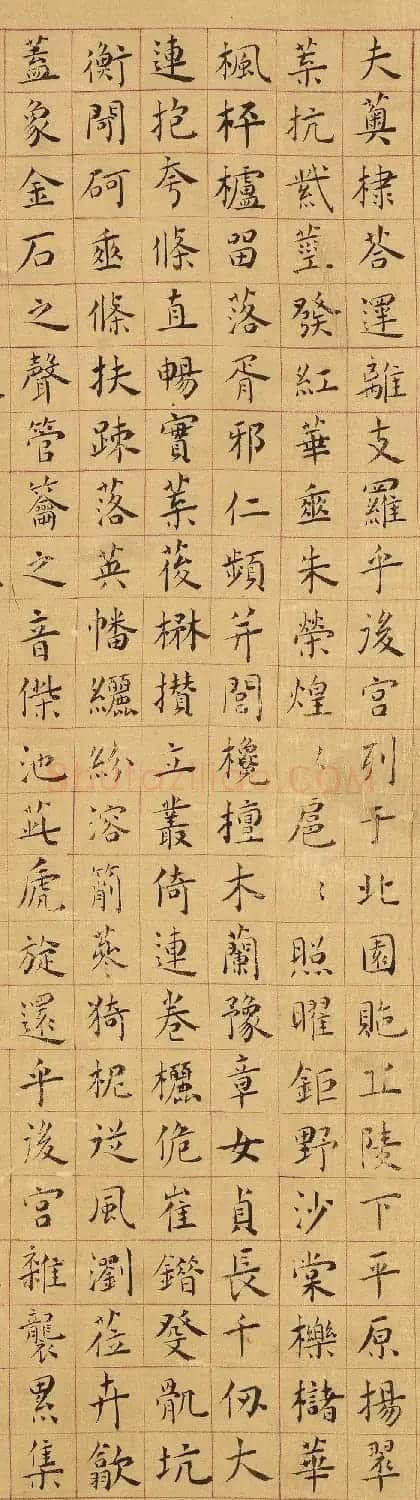 夫薁棣荅遝離支羅乎後宮列于北園貤丘陵下平原揚翠
葉抗紫莖發紅華垂朱榮煌〻扈〻照曜鉅野沙棠櫟櫧華
楓枰櫨留落胥邪仁頻并閭欃檀木蘭豫章女貞長千仞大
連抱夸條直暢實葉葰楙攢立叢倚連卷欐佹崔錯癹骫坑
衡閜砢垂條扶疎落英幡纚紛溶箾蔘猗柅從風瀏莅卉歙
蓋象金石之聲管籥之音傑池茈虒旋還乎後宮雜襲累集